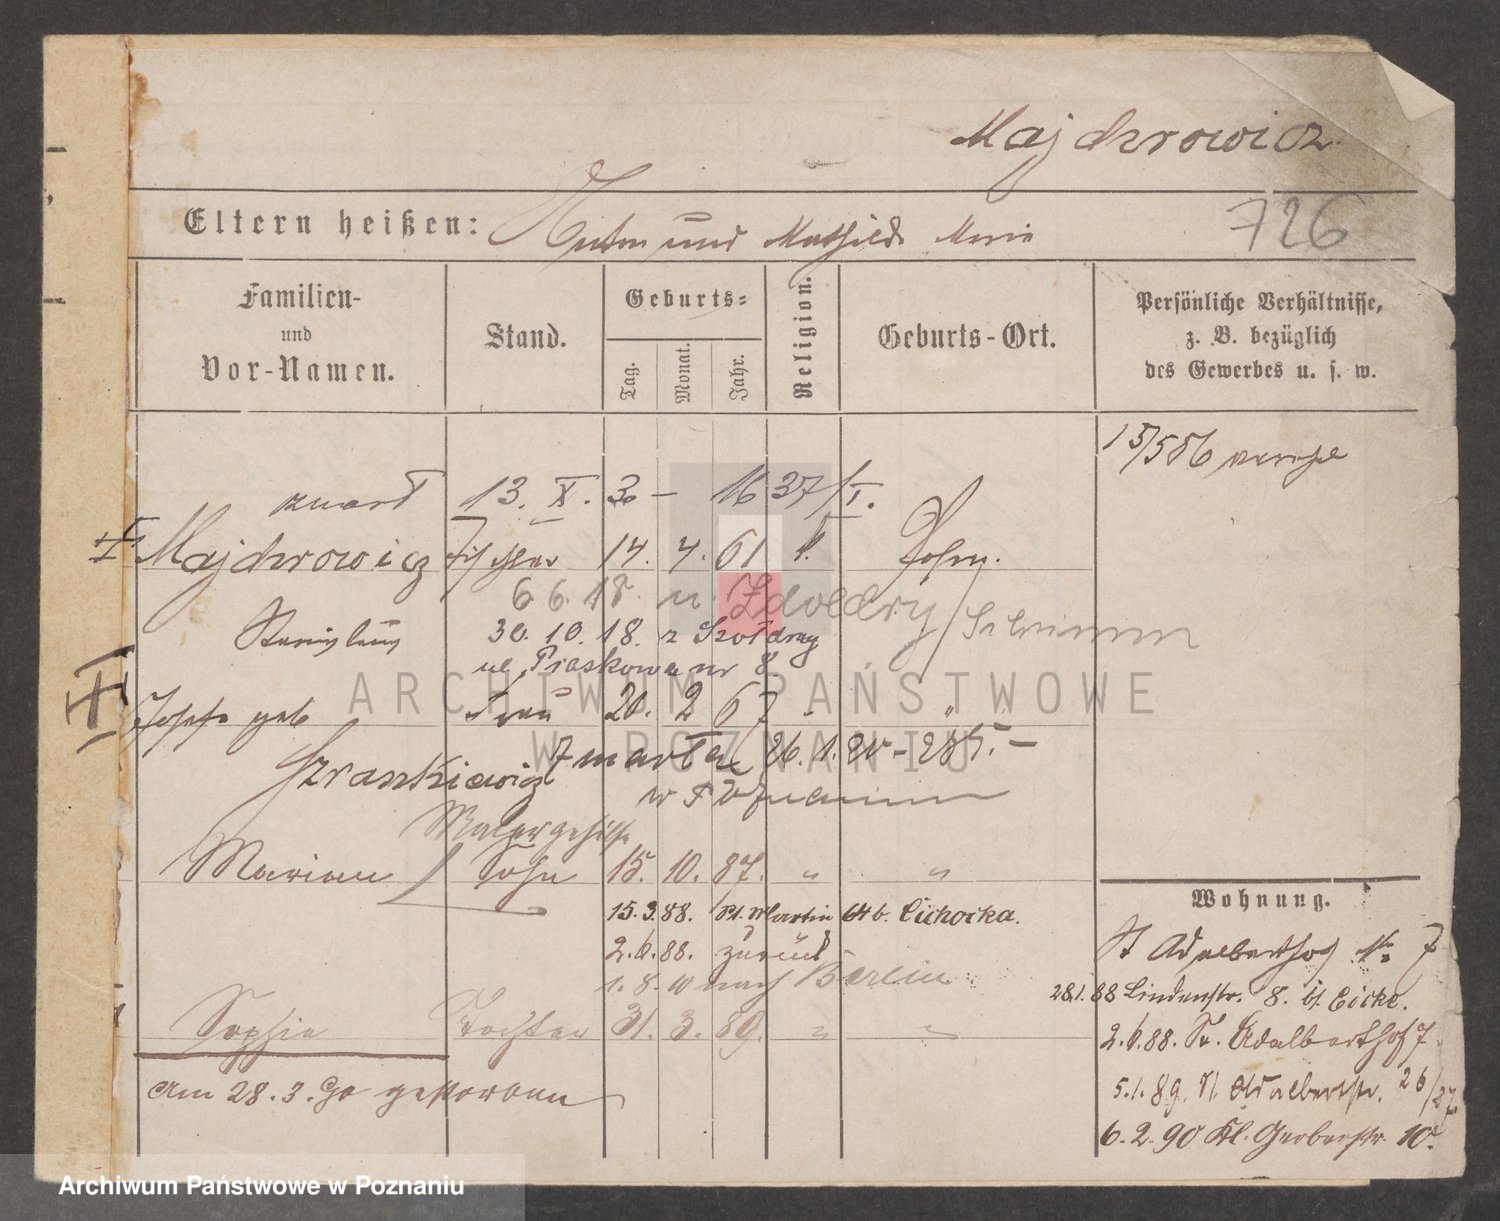 Majchrowicz
726
Eltern heißen: Anton und Mathilde Marie
Familien-
und
Vor-Namen.
Stand.
Geburts-
Tag.
Monat.
Jahr.
Religion.
Geburts-Ort.
Persönliche Verhältnisse,
z. B. bezüglich
des Gewerbes u. s. w.
zmarł 13. X. 3 - 1637/I.
Majchrowicz Tischler 14. 4. 61 k. Posen.
6 6. 18
Stanislaus 30. 10. 18. z Szołdry
ul. Piaskowa nr 8
Josefa geb Frau 20. 2 67 - "
zmarła 26. 1. 20 -
Malergehilfe
Marian Sohn 15. 10. 87. " "
15. 3. 88. St. Martin 64b. Cichocka.
2. 6. 88. zurück
1. 8. 10 nach Berlin
Sophie Tochter 31. 3. 89. " "
Am 28. 3. 90 gestorben
Wohnung.
St Adalberthof No 7
28.1.88 Lindenstr. 8. b. Eicke.
2. 6. 88. St. Adalberthof 7.
5. 1. 89. St Adalbertstr. 26/27
6. 2. 90 Kl. Gerberstr. 10.
ARCHIWUM PAŃSTWOWE
W POZNANIU
Archiwum Państwowe w Poznaniu